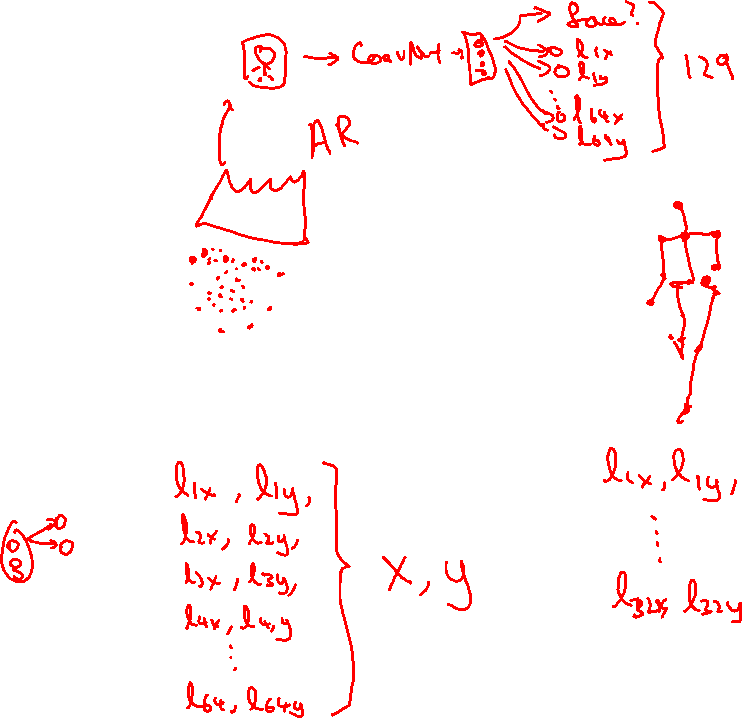 face?
ConvNet
l1x
l1y
l64x
l64y
129
AR
l1x, l1y,
l2x, l2y,
l3x, l3y,
l4x, l4,y
l64, l64y
x, y
l1x, l1y,
l32x, l32y